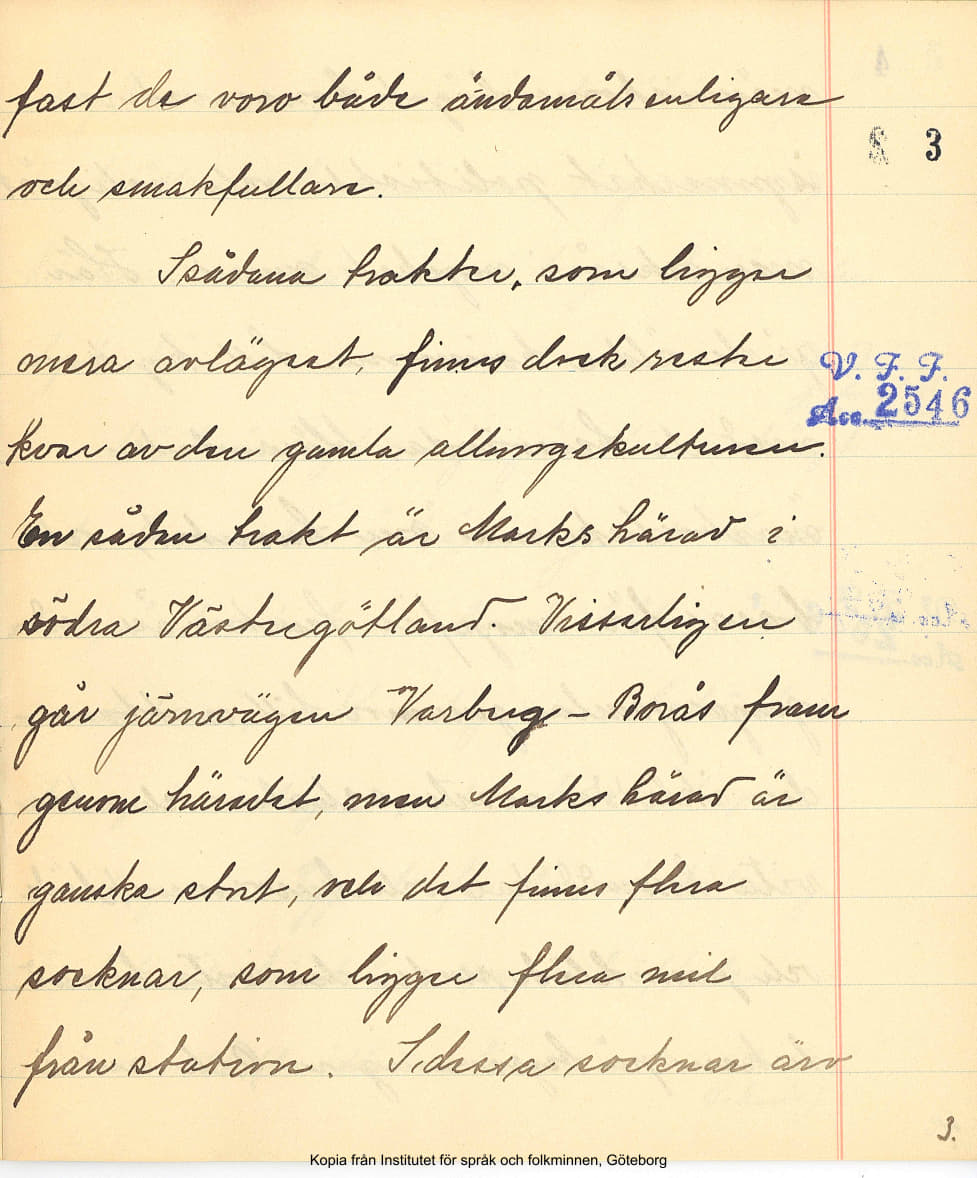 fast de voro både ändamålsenligare
3
och smakfullare.
I sådana trakter, som ligga
mera avlägset, finnes dock rester
V. F. F.
Acc. 2546
kvar av den gamla allmogekulturen.
En sådan trakt är Marks härad i
södra Västergötland. Visserligen
går järnvägen Varberg – Borås fram
genom häradet, men Marks härad är
ganska stort, och det finnes flera
socknar, som ligga flera mil
från station. I dessa socknar äro
3.
Kopia från Institutet för språk och folkminnen, Göteborg